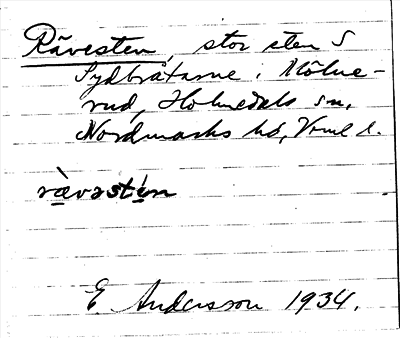 Rävesten, stor sten S
Sydbråtarne i Mölne-
rud, Holmedals sn,
Nordmarks hd, Vrml l.
rä̀vəstén
E. Andersson 1934.